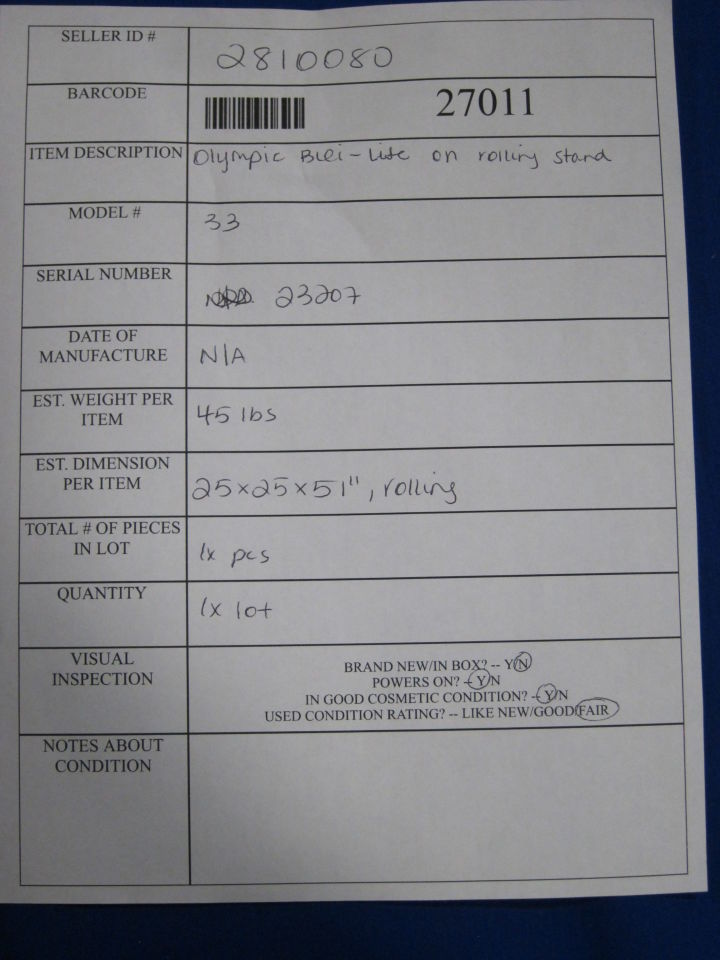 SELLER ID # 2810080
BARCODE 27011
ITEM DESCRIPTION Olympic Bili-Lite on rolling stand
MODEL # 33
SERIAL NUMBER 23207
DATE OF
MANUFACTURE N/A
EST. WEIGHT PER
ITEM 45 lbs
EST. DIMENSION
PER ITEM 25x25x51", rolling
TOTAL # OF PIECES
IN LOT 1x pcs
QUANTITY 1x lot
VISUAL
INSPECTION
BRAND NEW/IN BOX? -- Y/N
POWERS ON? -- Y/N
IN GOOD COSMETIC CONDITION? -- Y/N
USED CONDITION RATING? -- LIKE NEW/GOOD/FAIR
NOTES ABOUT
CONDITION